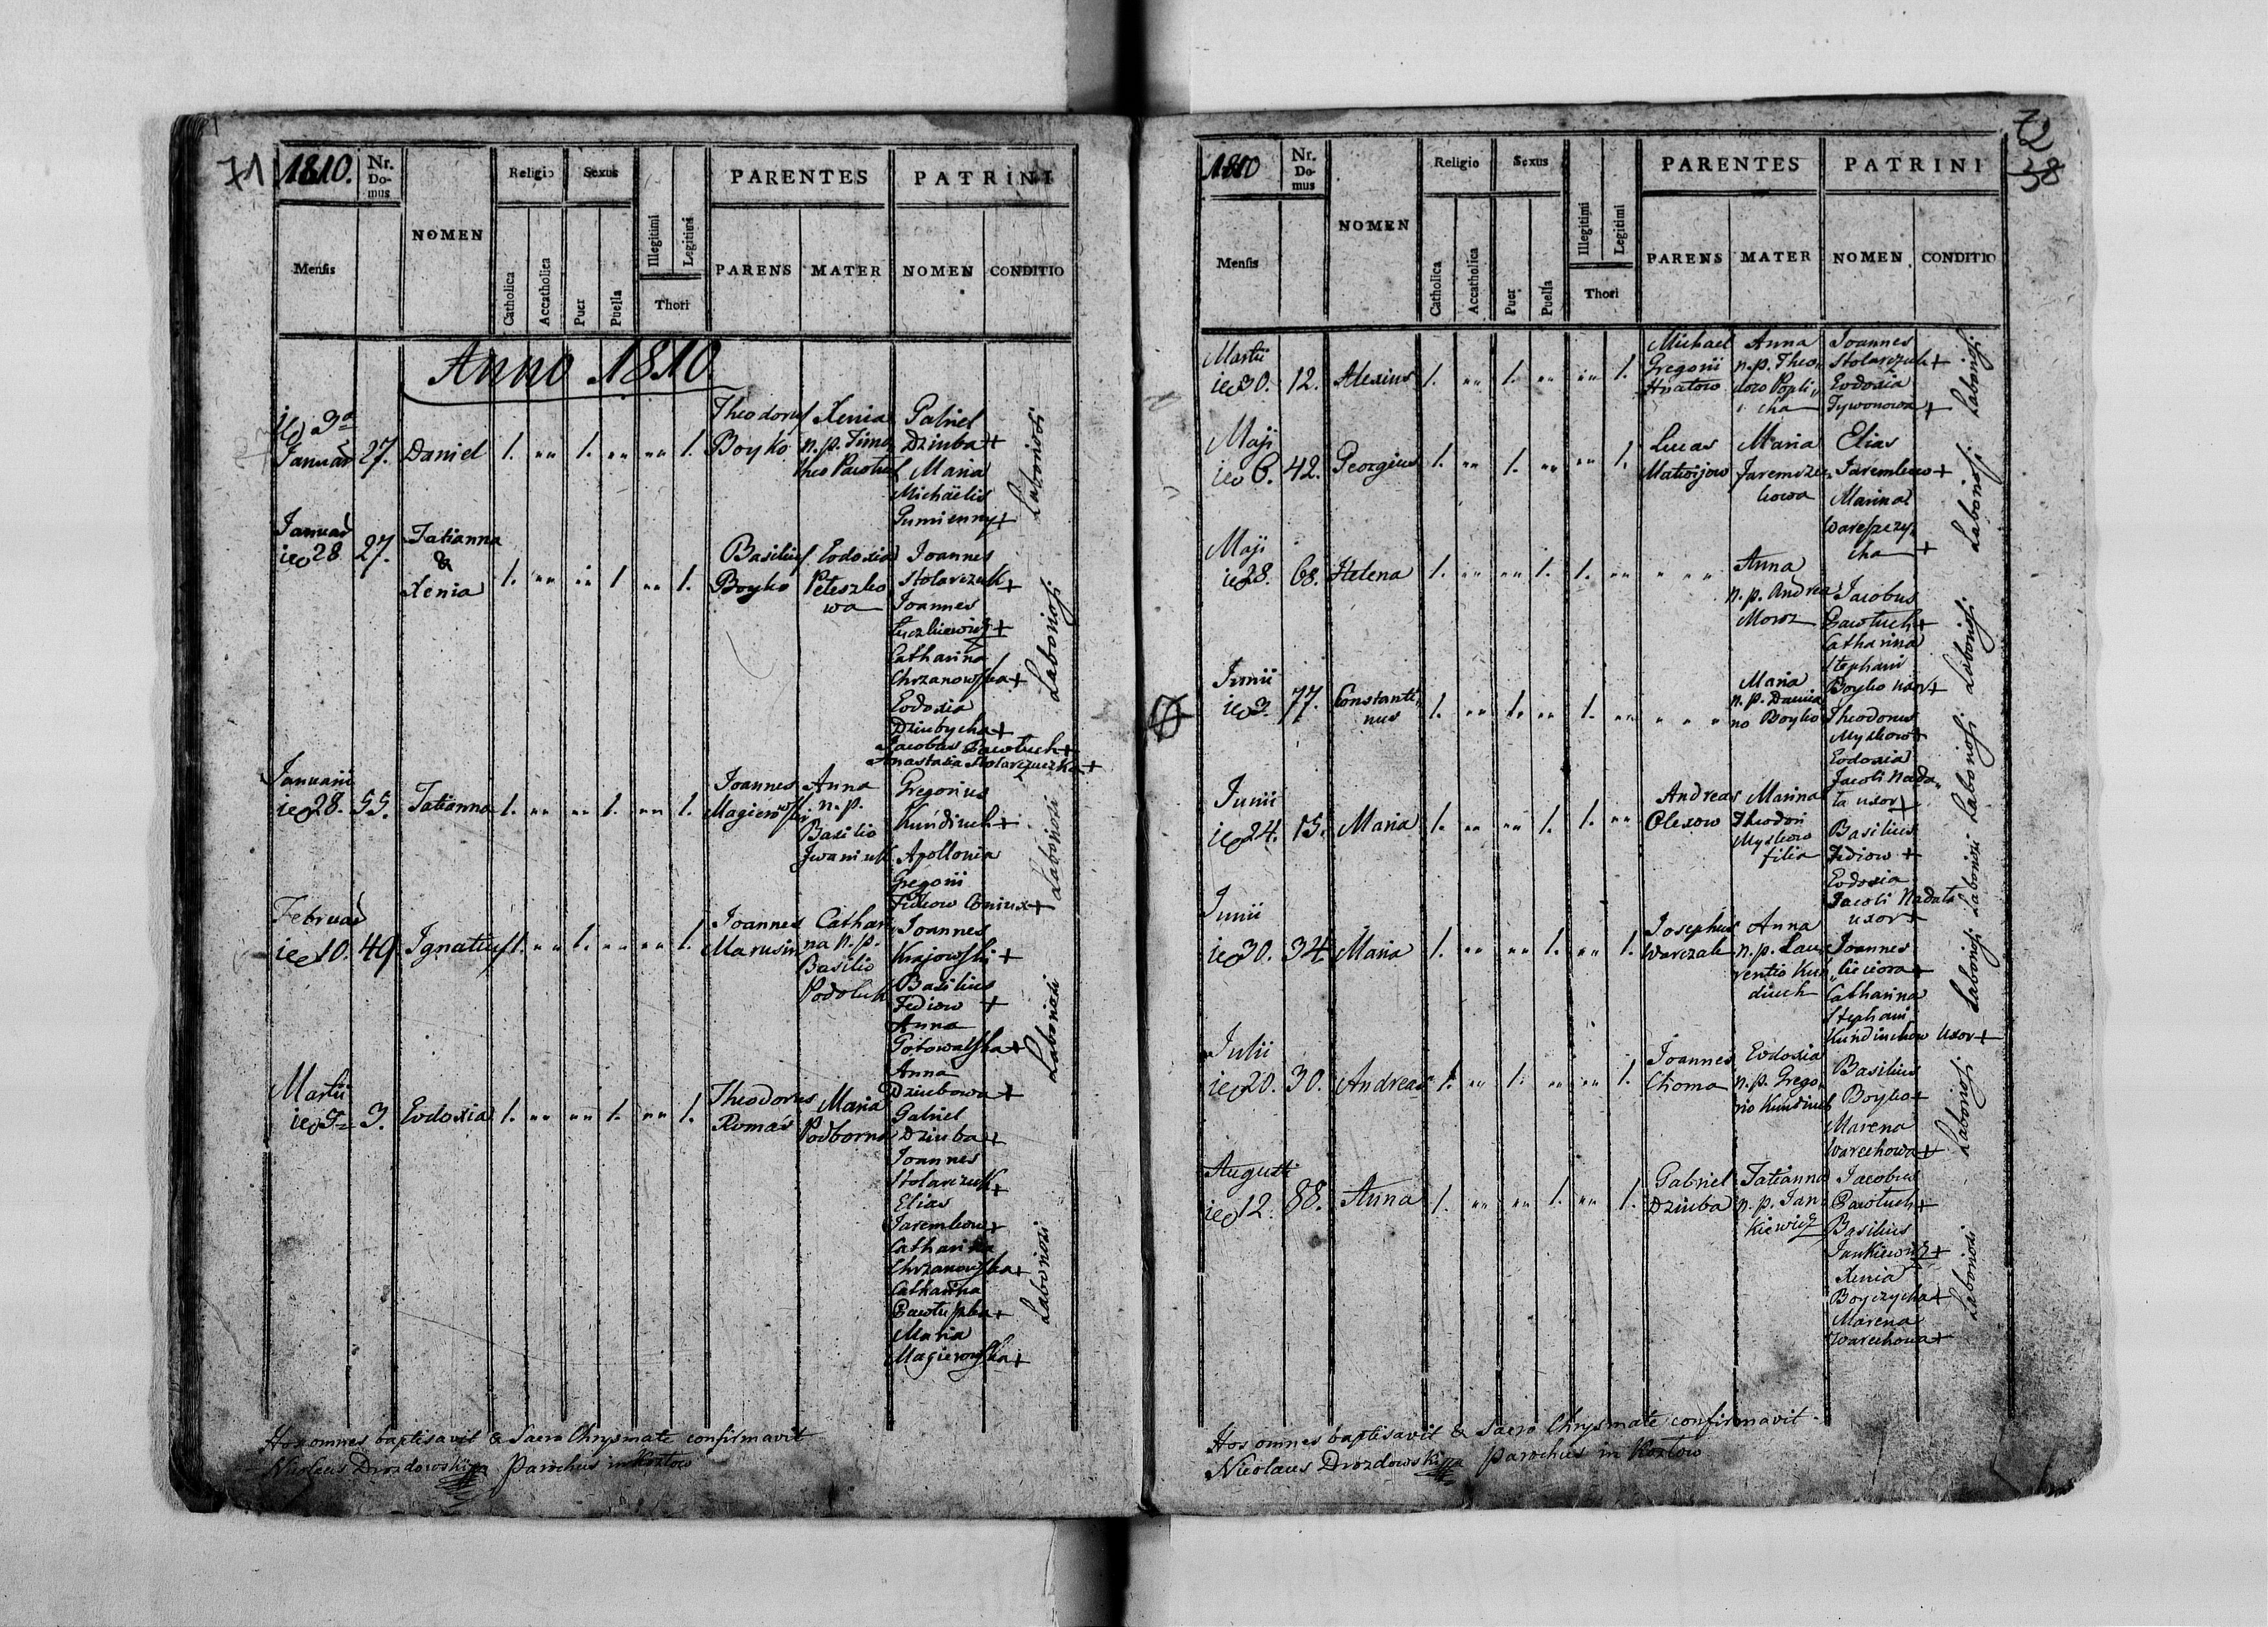 71
1810.
Nr. Do- mus
NOMEN
Religio
Sexus
Illegitimi
Legitimi
PARENTES
PATRINI
Mensis
Catholica
Accatholica
Puer
Puella
Thori
PARENS
MATER
NOMEN
CONDITIO
Anno 1810
3a Januar 27. Daniel 1. " 1. " " 1.
Theodorus
Boyko
Xenia
n. p. Timo
theo
Gabriel
Dziuba +
Maria
Michaëlis
+
Laboriosi
Januar
28 27. Tatianna
&
Xenia 1. " " 1 " 1.
Basilius
Boyko
Eodoxia
Peteszko
wa
Joannes
Stolarczuk +
Joannes
Łuczkiewicz +
Catharina
Chrzanowska +
Eodoxia
Dziubycha +
Jacobus Pawłuch +
Anastasia Stolarczuczka +
Laboriosi
Januarii
28. 55. Tatianna 1. " " 1. " 1.
Joannes
Magierowski
Anna
n. p.
Basilio
Iwaniuk
Gregorius
Kundiuch +
Apollonia
Gregorii
Fediow Coniux +
Laboriosi
Februar
10. 49. Ignatius 1. " 1. " " 1.
Joannes
Marusin
Cathari
na n. p.
Basilio
Podoluk
Joannes
Krajowski +
Basilius
Fediow +
Anna
Gotowalska +
Anna
Dziubowa +
Laboriosi
Martii
3. Eodoxia 1. " " 1. " 1.
Theodorus
Romas
Maria
Podborna
Gabriel
Dziuba +
Joannes
Stolarczuk +
Elias
Jaremkow +
Catharina
Chrzanowska +
Catharina
+
Maria
Magierowska +
Laboriosi
Hos omnes baptisavit & Sacro Chrysmate confirmavit
Nicolaus Drozdowski Parochus in Kozłow
72
38
1810
Nr. Do- mus
NOMEN
Religio
Sexus
Illegitimi
Legitimi
PARENTES
PATRINI
Mensis
Catholica
Accatholica
Puer
Puella
Thori
PARENS
MATER
NOMEN
CONDITIO
Martii
30. 12. Alexius 1. " 1. " " 1.
Michael
Gregorii
Hnatow
Anna
n. p. Theo,
doro Popli,
cha
Joannes
Stolarczuk +
Eodoxia
Tywonowa +
Laboriosi
Maji
6. 42. Georgius 1. " 1. " " 1.
Lucas
Matwijow
Maria
Jaremcza
kowa
Elias
Jaremkow +
Marina
cha +
Laboriosi
Maji
28. 68. Helena 1. " " 1. 1. " " "
Anna
n. p. Andrea
Moroz
Jacobus
Pawłuch +
Catharina
Stephani
Boyko uxor +
Laboriosi
Junii
3. 77. Constanti,
nus 1. " 1. " 1. " " "
Maria
n. p. Damia
no Boyko
Theodorus
Myskow +
Eodoxia
Jacobi Nada,
ta uxor +
Laboriosi
Junii
24. 15. Maria 1. " " 1. 1. "
Andreas
Olexow
Marina
Theodori
Myskow
filia
Basilius
Fediow +
Eodoxia
Jacobi Nadata
uxor +
Laboriosi
Junii
30. 34. Maria 1. " " 1. " 1.
Josephus
Warczak
Anna
n. p. Lau
rentio Kun
diuch
Joannes
+
Catharina
Stephani
Kundiuchow Uxor +
Laboriosi
Julii
20. 30. Andreas 1. " 1. " " 1.
Joannes
Choma
Eodoxia
n. p. Grego,
rio Kundiuch
Basilius
Boyko +
Marena
Warechowa +
Laboriosi
Augusti
12. 88. Anna 1. " " 1. " 1.
Gabriel
Dziuba
Tatianna
n. p. Jan,
kiewicz
Jacobus
Pawłuch +
Basilius
Jankiewicz +
Xenia
Boyczycha +
Marena
Warechowa +
Laboriosi
Hos omnes baptisavit & Sacro Chrysmate confirmavit
Nicolaus Drozdowski Parochus in Kozłow